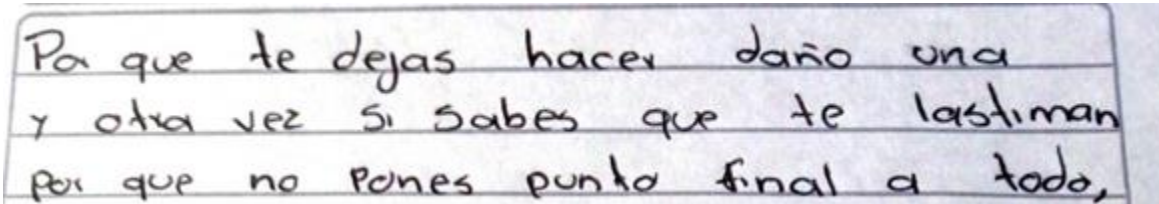 Por que te dejas hacer daño una
y otra vez si sabes que te lastiman
por que no pones punto final a todo,